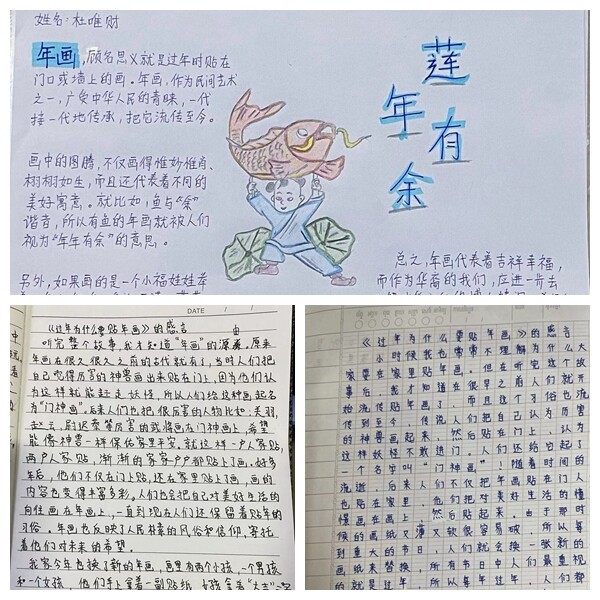 姓名：杜唯财
年画，顾名思义就是过年时贴在
门口或墙上的画。年画，作为民间艺术
之一，广受中华人民的青睐，一代
接一代地传承，把它流传至今。
画中的图腾，不仅画得惟妙惟肖、
栩栩如生，而且还代表着不同的
美好寓意。就比如，鱼与“余”
谐音，所以有鱼的年画就被人们
视为“年年有余”的意思。
另外，如果画的是一个小福娃娃牵
莲
年
有
余
总之，年画代表着吉祥幸福，
而作为华裔的我们，应进一步去
DATE
《过年为什么要贴年画》的感言 由
听完整个故事，我才知道“年画”的源处。原来
年画在很久很久之前的古代就有了，当时人们把
自己觉得厉害的神兽画出来贴在门上，因为他们认
为这样就能赶走妖怪，所以人们给这种画起名
为“门神画”。后来人们也把很厉害的人物比如：关羽，
赵云，尉迟恭等厉害的武将画在门神画上，希望
能像神兽一样保佑家里平安，就这样一户人家贴，
两户人家贴，渐渐的家家户户都贴上了画。好多
年后，他们不仅在门上贴，还在家里贴上了画，画的
内容也变得丰富多彩。人们也会把自己对美好生活的
向往画在年画上，一直到现在人们还保留着贴年的
习俗。年画也反映了人民朴素的风俗和信仰，寄托
着他们对未来的希望。
我家今年也换了新的年画，画里有两个小孩，一个男孩
和一个女孩，他们手上拿着一副贴纸，女孩拿着“大吉”
《过年为什么要贴年画》的感言
小时候我也常常不理解为什么大
家要在家里贴年画。但在听完这个故
事后，我才知道在很早之前人们就开
始流传贴年画了，而且这个习俗也流
传到至今。传说人们把自己认为厉害
的神兽画起来，然后贴在门上，认为
这样妖怪不敢进门。人们还给它起了
一个名字叫“门神画”！随着时间的
流逝，后来人们不仅把年画贴在门上
也贴在家里，他们把对美好生活的憧
憬画在画上，然后贴起来。由于那时
候的画纸又薄又软很容易破，所以每
到重大的节日，人们就会换一张新的
画纸来替换，所有节日中人们最重视
的就是过年，所以每年过年，人们都